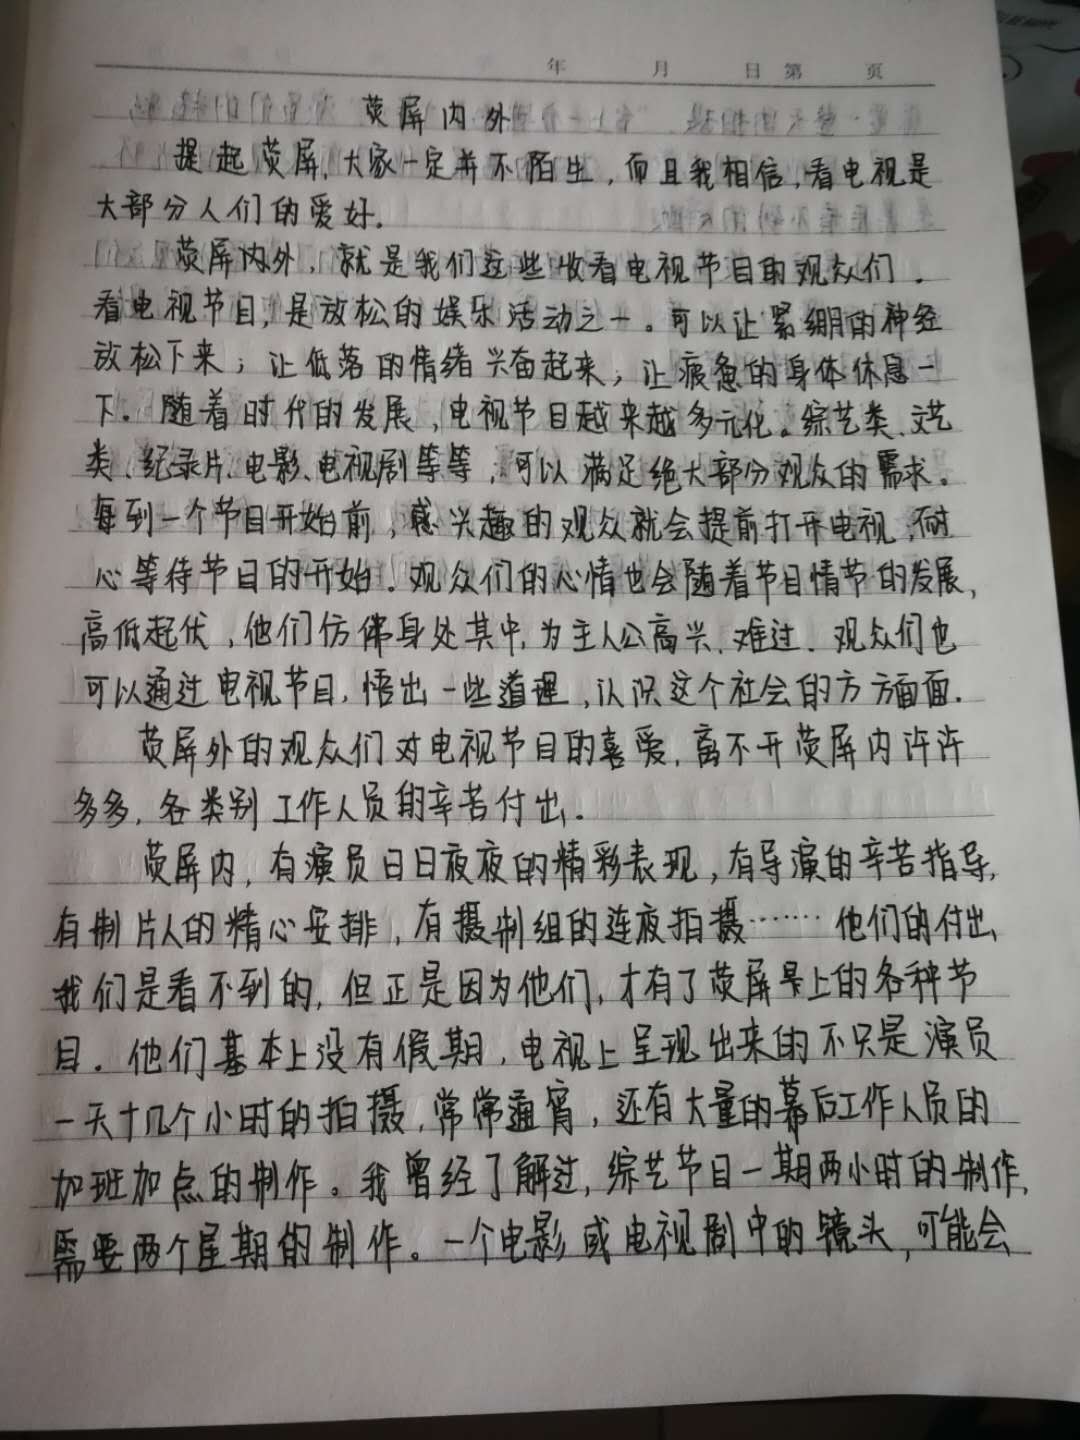 年 月 日 第 页
荧屏内外
提起荧屏,大家一定并不陌生,而且我相信,看电视是
大部分人们的爱好.
荧屏内外,就是我们这些收看电视节目的观众们.
看电视节目,是放松的娱乐活动之一。可以让紧绷的神经
放松下来;让低落的情绪兴奋起来;让疲惫的身体休息一
下。随着时代的发展,电视节目越来越多元化。综艺类、文艺
类、纪录片、电影、电视剧等等,可以满足绝大部分观众的需求。
每到一个节目开始前,感兴趣的观众就会提前打开电视,耐
心等待节目的开始.观众们的心情也会随着节目情节的发展,
高低起伏,他们仿佛身处其中,为主人公高兴、难过.观众们也
可以通过电视节目,悟出一些道理,认识这个社会的方方面面.
荧屏外的观众们对电视节目的喜爱,离不开荧屏内许许
多多,各类别工作人员的辛苦付出。
荧屏内,有演员日日夜夜的精彩表现,有导演的辛苦指导,
有制片人的精心安排,有摄制组的连夜拍摄……他们的付出,
我们是看不到的,但正是因为他们,才有了荧屏上的各种节
目.他们基本上没有假期,电视上呈现出来的不只是演员
一天十几个小时的拍摄,常常通宵,还有大量的幕后工作人员的
加班加点的制作。我曾经了解过,综艺节目一期两小时的制作,
需要两个星期的制作。一个电影或电视剧中的镜头,可能会